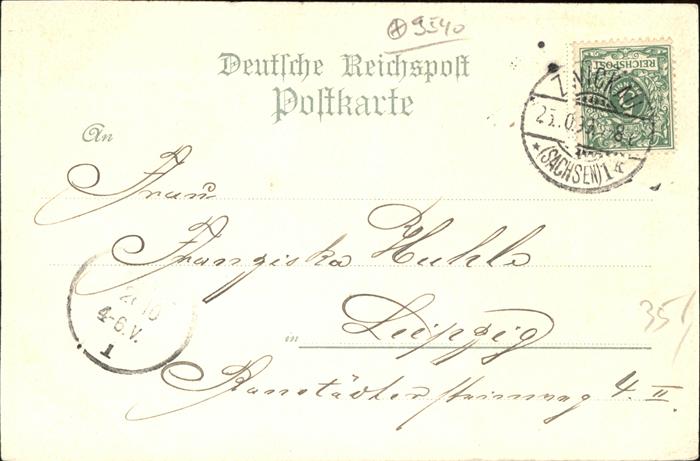 ⊛9540
Deutsche Reichspost
Postkarte
REICHSPOST
ZWICKAU
(SACHSEN) 1
An
Frau
Franziska Huhle
in Leipzig
Ranstädter Steinweg 4. II
4-6.V.
1
35